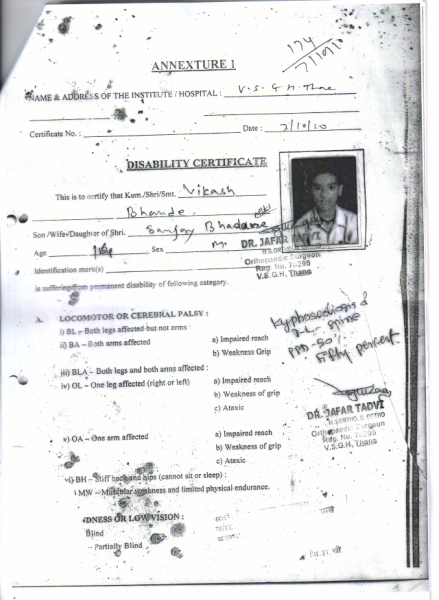 174
7/10/10
ANNEXTURE 1
NAME & ADDRESS OF THE INSTITUTE / HOSPITAL : V.S.G.H. Thane
Certificate No. : Date : 7/10/10
DISABILITY CERTIFICATE
This is to certify that Kum./Shri/Smt. Vikash
Bhande
Son /Wife/Daughter of Shri. Sanjay
Age Sex M.
DR. JAFAR TADVI
Orthopaedic Surgeon
Reg. No. 76295
V.S.G.H, Thane
Identification mark(s)
is suffering from permanent disability of following category.
A. LOCOMOTOR OR CEREBRAL PALSY :
i) BL – Both legs affected but not arms
ii) BA – Both arms affected a) Impaired reach
b) Weakness Grip
Kyphoscoliosis
D-L spine
PPD-50%
Fifty percent.
iii) BLA – Both legs and both arms affected :
iv) OL – One leg affected (right or left) a) Impaired reach
b) Weakness of grip
c) Ataxic
DR. JAFAR TADVI
Orthopaedic Surgeon
Reg. No. 76295
V.S.G.H, Thane
v) OA – One arm affected a) Impaired reach
b) Weakness of grip
c) Ataxic
vi) BH – Stiff back and hips (cannot sit or sleep) :
MW – Muscular weakness and limited physical endurance.
DNESS OR LOW VISION :
Blind
- Partially Blind